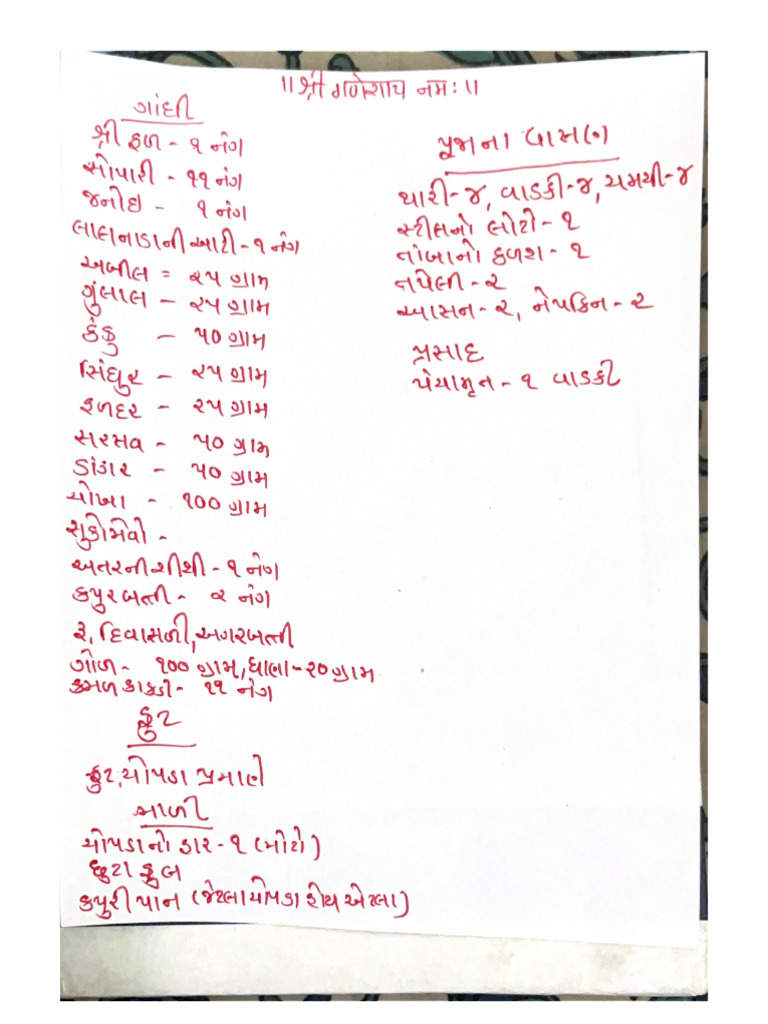 ॥ श्री गणेशाय नमः ॥
ગાંધી
શ્રી ફળ - ૧ નંગ
સોપારી - ૧૧ નંગ
જનોઇ - ૧ નંગ
લાલનાડાની આટી - ૧ નંગ
અબીલ = ૨૫ ગ્રામ
ગુંલાલ - ૨૫ ગ્રામ
કંકુ - ૫૦ ગ્રામ
સિંધુર - ૨૫ ગ્રામ
હળદર - ૨૫ ગ્રામ
સરસવ - ૫૦ ગ્રામ
ડાંગર - ૫૦ ગ્રામ
ચોખા - ૧૦૦ ગ્રામ
સુકોમેવો -
અતરની શીશી - ૧ નંગ
કપુરબત્તી - ૨ નંગ
રૂ, દિવાસળી, અગરબત્તી
ગોળ - ૧૦૦ ગ્રામ, ધાણા - ૨૦ ગ્રામ
કમળ કાકડી - ૧૧ નંગ
ફ્રુટ
ફ્રુટ, ચોપડા પ્રમાણે
માળી
ચોપડાનો હાર - ૧ (મોટો)
છુટા ફુલ
કપુરી પાન (જેટલા ચોપડા હોય એટલા)
પૂજાના
થારી - ૪, વાડકી - ૪, ચમચી - ૪
સ્ટીલનો લોટો - ૧
તાંબાનો કળશ - ૧
તપેલી - ૨
આસન - ૨, નેપકિન - ૨
પ્રસાદ
પંચામૃત - ૧ વાડકી